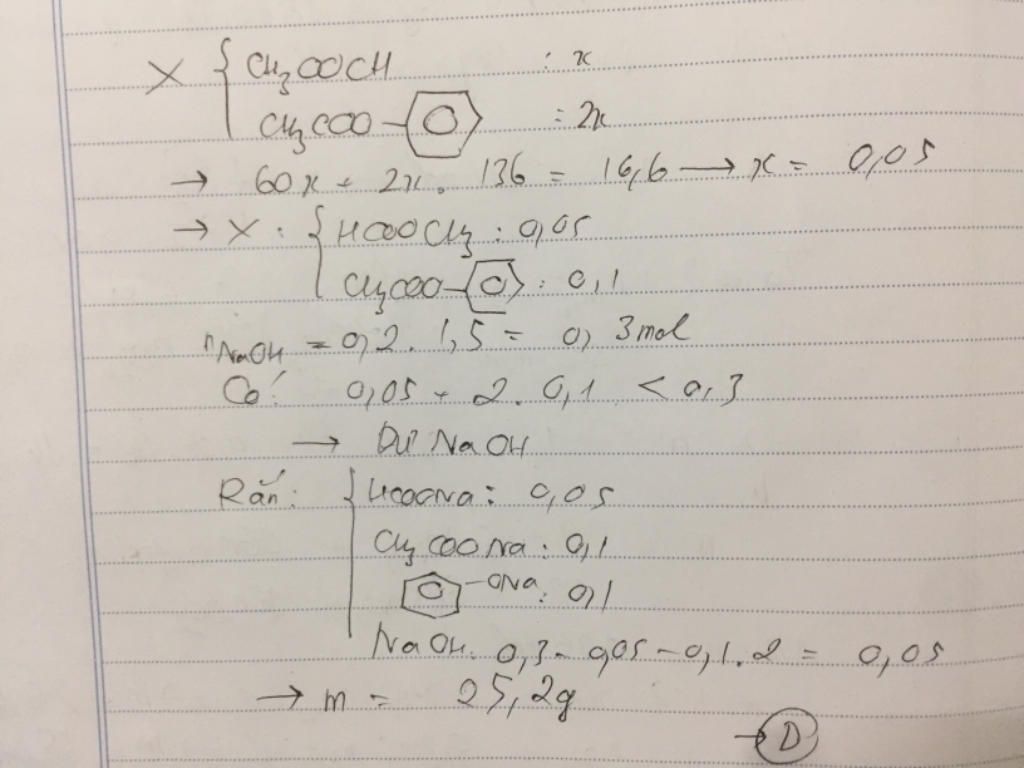 X { CH3OOCH : x
CH3COO-⌬ : 2x
→ 60x + 2x. 136 = 16,6 → x = 0,05
→ X : { HCOOCH3 : 0,05
CH3COO-⌬ : 0,1
nNaOH = 0,2. 1,5 = 0,3mol
Có: 0,05 + 2. 0,1 < 0,3
→ Dư NaOH
Rắn: { HCOONa : 0,05
CH3COONa : 0,1
⌬-ONa : 0,1
NaOH: 0,3 - 0,05 - 0,1.2 = 0,05
→ m = 25,2g
→ D